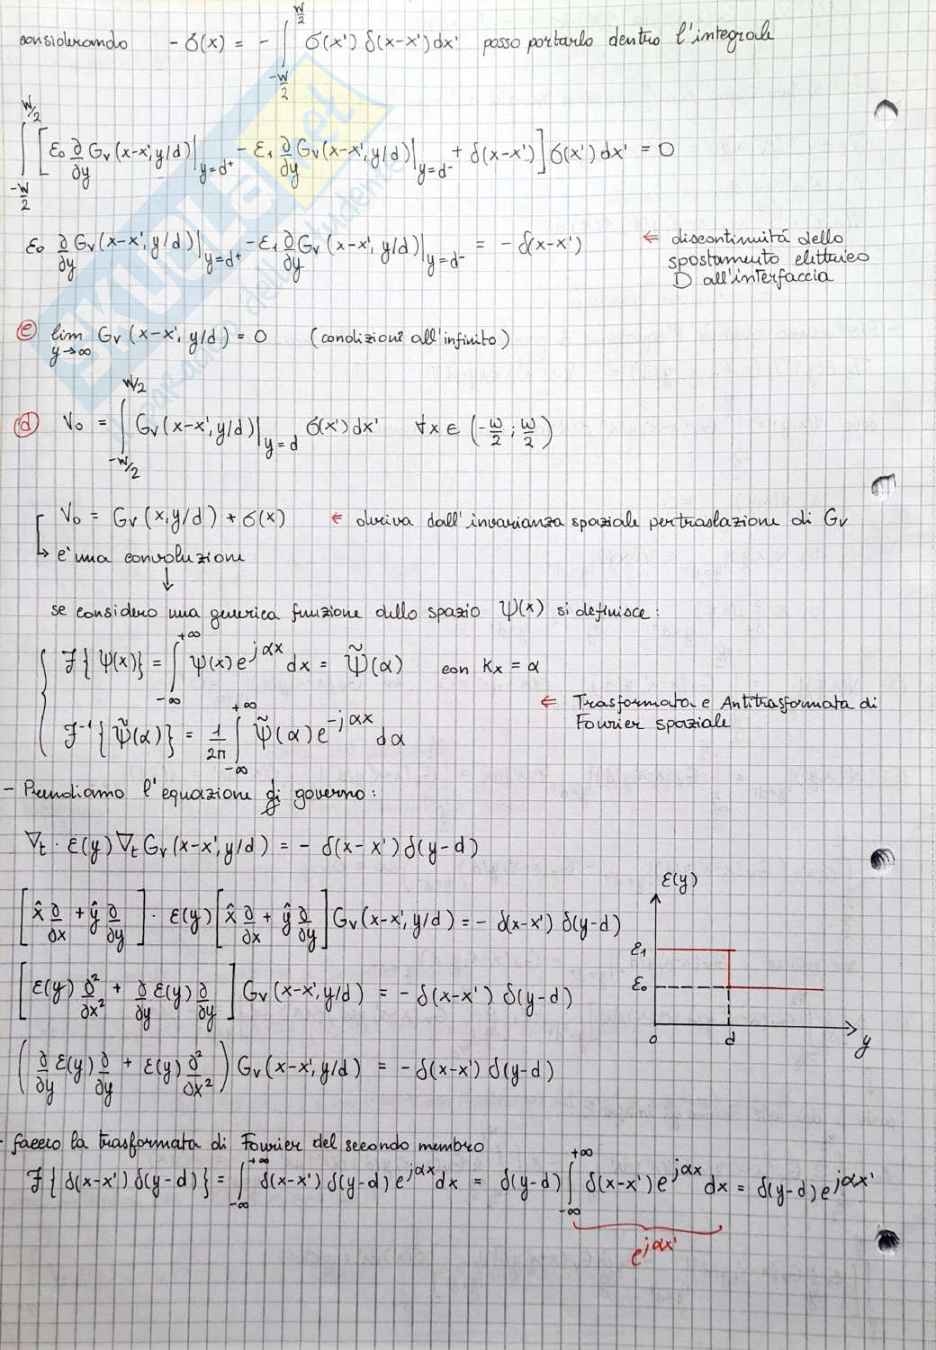 considerando - σ(x) = - ∫_{-W/2}^{W/2} σ(x') δ(x-x') dx' posso portarlo dentro l'integrale
∫_{-W/2}^{W/2} [ε₀ ∂/∂y Gv(x-x', y/d)|_{y=d⁺} - ε₁ ∂/∂y Gv(x-x', y/d)|_{y=d⁻} + δ(x-x')] σ(x') dx' = 0
ε₀ ∂/∂y Gv(x-x', y/d)|_{y=d⁺} - ε₁ ∂/∂y Gv(x-x', y/d)|_{y=d⁻} = - δ(x-x') ⇐ discontinuità dello
spostamento elettrico
D all'interfaccia
ⓔ lim_{y→∞} Gv(x-x', y/d) = 0 (condizioni all'infinito)
ⓓ V₀ = ∫_{-W/2}^{W/2} Gv(x-x', y/d)|_{y=d} σ(x') dx' ∀x ∈ (-W/2 ; W/2)
V₀ = Gv(x, y/d) * σ(x) ⇐ deriva dall'invarianza spaziale per traslazione di Gv
↳ è una convoluzione
↓
se considero una generica funzione dello spazio Ψ(x) si definisce:
ℱ{Ψ(x)} = ∫_{-∞}^{+∞} Ψ(x) e^{jαx} dx = Ψ̃(α) con Kx = α
⇐ Trasformata e Antitrasformata di
Fourier spaziale
ℱ⁻¹{Ψ̃(α)} = 1/2π ∫_{-∞}^{+∞} Ψ̃(α) e^{-jαx} dα
- Prendiamo l'equazione di governo:
∇t · ε(y) ∇t Gv(x-x', y/d) = - δ(x-x') δ(y-d)
ε(y)
[x̂ ∂/∂x + ŷ ∂/∂y] · ε(y) [x̂ ∂/∂x + ŷ ∂/∂y] Gv(x-x', y/d) = - δ(x-x') δ(y-d)
ε₁
[ε(y) ∂²/∂x² + ∂/∂y ε(y) ∂/∂y] Gv(x-x', y/d) = - δ(x-x') δ(y-d)
ε₀
0 d y
(∂/∂y ε(y) ∂/∂y + ε(y) ∂²/∂x²) Gv(x-x', y/d) = - δ(x-x') δ(y-d)
- faccio la trasformata di Fourier del secondo membro
ℱ{δ(x-x') δ(y-d)} = ∫_{-∞}^{+∞} δ(x-x') δ(y-d) e^{jαx} dx = δ(y-d) ∫_{-∞}^{+∞} δ(x-x') e^{jαx} dx = δ(y-d) e^{jαx'}
e^{jαx'}
SKUOLA.net